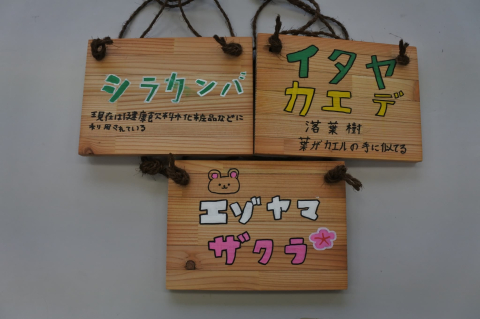 シラカンバ
現在は健康食品や化粧品などに
利用されている
イタヤ
カエデ
落葉樹
葉がカエルの手に似てる
エゾヤマ
ザクラ